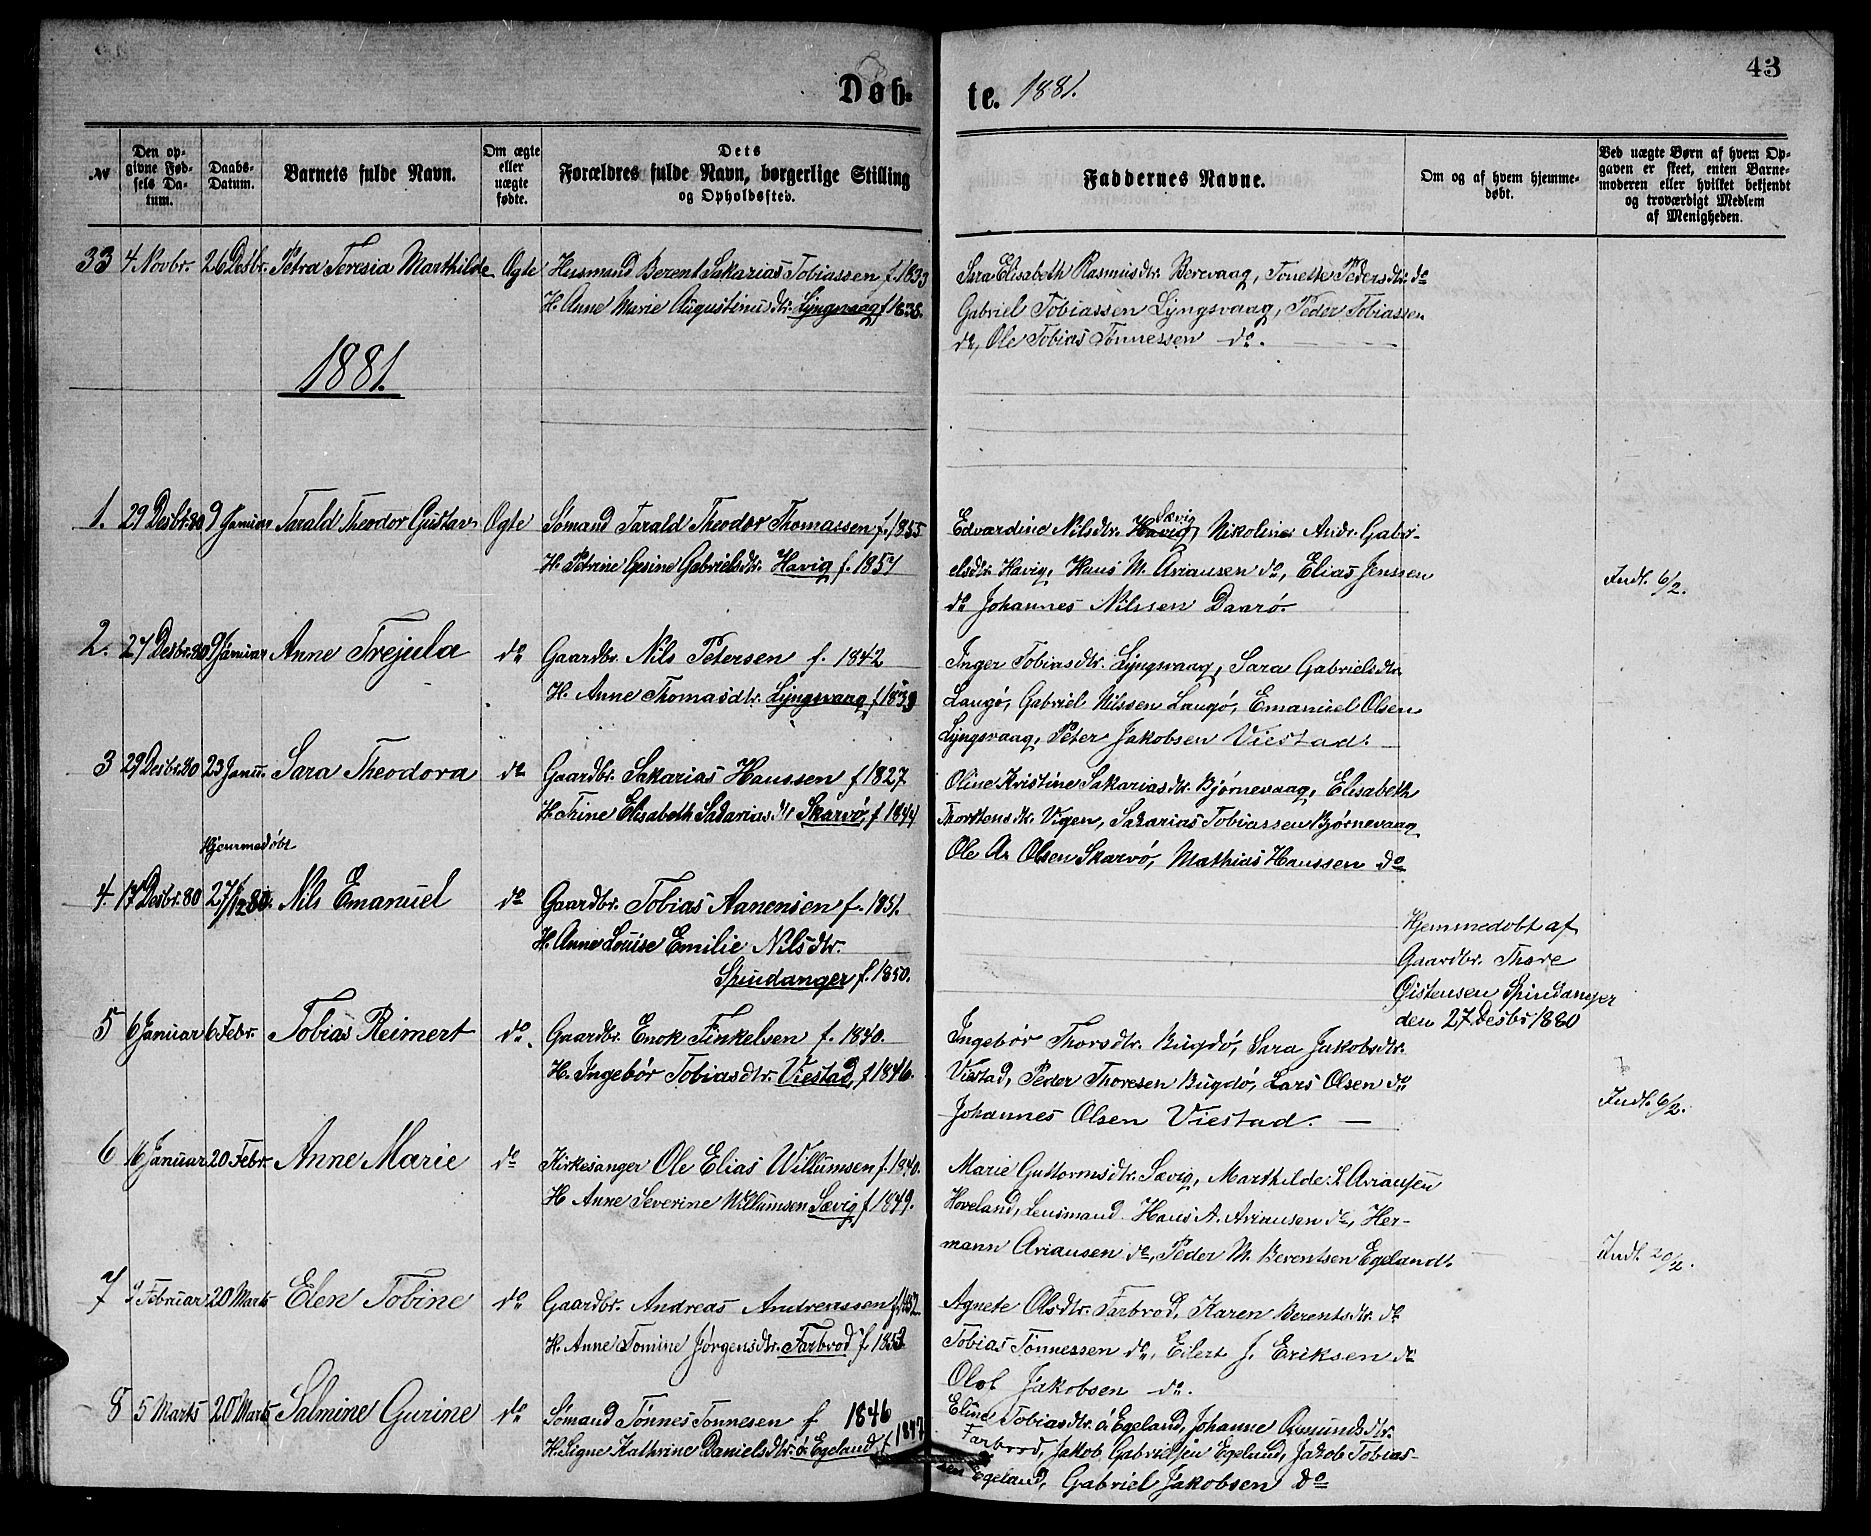 43
Døb-te. 1881.
№
Den opgivne Fødsels Datum.
Daabs-Datum.
Barnets fulde Navn.
Om ægte eller uægte fødte.
Dets Forældres fulde Navn, borgerlige Stilling og Opholdssted.
Faddernes Navne.
Om og af hvem hjemmedøbt.
Ved uægte Børn af hvem Opgaven er skeet, enten Barnemoderen eller hvilket bekjendt og troværdigt Medlem af Menigheden.
33 4 Novbr. 26 Desbr. Petra Teresia Marthilde Ægte Husmand Berent Sakarias Tobiassen f. 1833
H. Anne Marie Augustinusdtr. Lyngsvaag f 1838.
Sara Elisabeth Rasmusdtr. Berevaag, Tonette Pedersdtr. do
Gabriel Tobiassen Lyngsvaag, Peder Tobiassen
do, Ole Tobias Tønnessen do.
1881.
1. 29 Desbr. 80 9 Januar Tarald Theodor Gustav Ægte Sømand Tarald Theodor Thomassen f. 1855
H. Petrine Gesine Gabrielsdtr. Havig f. 1857
Edvardine Nilsdtr. Havig Sævig, Nikoline Andr. Gabri-
elsdtr. Havig, Hans M. Ariansen do, Elias Jenssen
do Johannes Nilssen Daarø.
Indl. 6/2.
2. 27 Desbr. 80 9 Januar Anne Trejula do Gaardbr. Nils Petersen f. 1842
H. Anne Thomasdtr. Lyngsvaag f 1839
Inger Tobiasdtr. Lyngsvaag, Sara Gabrielsdtr.
Langø, Gabriel Nilssen Langø, Emanuel Olsen
Lyngsvaag, Peter Jakobsen Viestad.
3 29 Desbr. 80 23 Janu. Sara Theodora do Gaardbr. Sakarias Hanssen f 1827
H. Trine Elisabeth Sakariasdtr Skarvø, f 1844
Oline Kristine Sakariasdtr. Bjørnevaag, Elisabeth
Thorstensdtr. Vigen, Sakarias Tobiassen Bjørnevaag
Ole A. Olsen Skarvø, Mathias Hanssen do
Hjemmedøbt
4. 17 Desbr. 80 27/12 80. Nils Emanuel do Gaardbr. Tobias Aanensen f. 1851.
H. Anne Louise Emilie Nilsdtr.
Spindanger f. 1850.
Hjemmedøbt af
Gaardbr. Thore
Øistensen Spindanger
den 27 Desbr 1880
5 6 Januar 6 Febr. Tobias Reimert do. Gaardbr. Enok Finkelsen f. 1840.
H. Ingebør Tobiasdtr. Viestad, f 1846.
Ingebør Thorsdtr. Bugdø, Sara Jakobsdtr.
Viestad, Peder Thoresen Bugdø, Lars Olsen do
Johannes Olsen Viestad.
Indl. 6/2.
6 16 Januar 20 Febr. Anne Marie do Kirkesanger Ole Elias Willumsen f. 1840.
H Anne Severine Willumsen Sævig f 1849.
Marie Guttormsdtr. Sævig, Marthilde L Ariansen
Hoveland, Lensmand Hans A. Ariansen do, Her-
mann Ariansen do, Peder M. Berentsen Egeland.
Indl. 20/2.
7 Februar 20 Marts Elen Tobine do Gaardbr. Andreas Andreassen f 1852
H. Anne Tomine Jørgensdtr. Farbrod f 1852
Agnete Olsdtr. Farbrod, Karen Berentsdtr. do
Tobias Tønnessen do, Eilert J. Eriksen do
Olof Jakobsen do.
8 5 Marts 20 Marts Salmine Gurine do Sømand Tønnes Tønnesen f 1846
H. Signe Kathrine Danielsdtr. ó Egeland f 1847
Eline Tobiasdtr. ó Egeland, Johanne Omundsdtr.
Farbrod, Jakob Gabrielsen Egeland, Jakob Tobias-
sen Egeland, Gabriel Jakobsen do